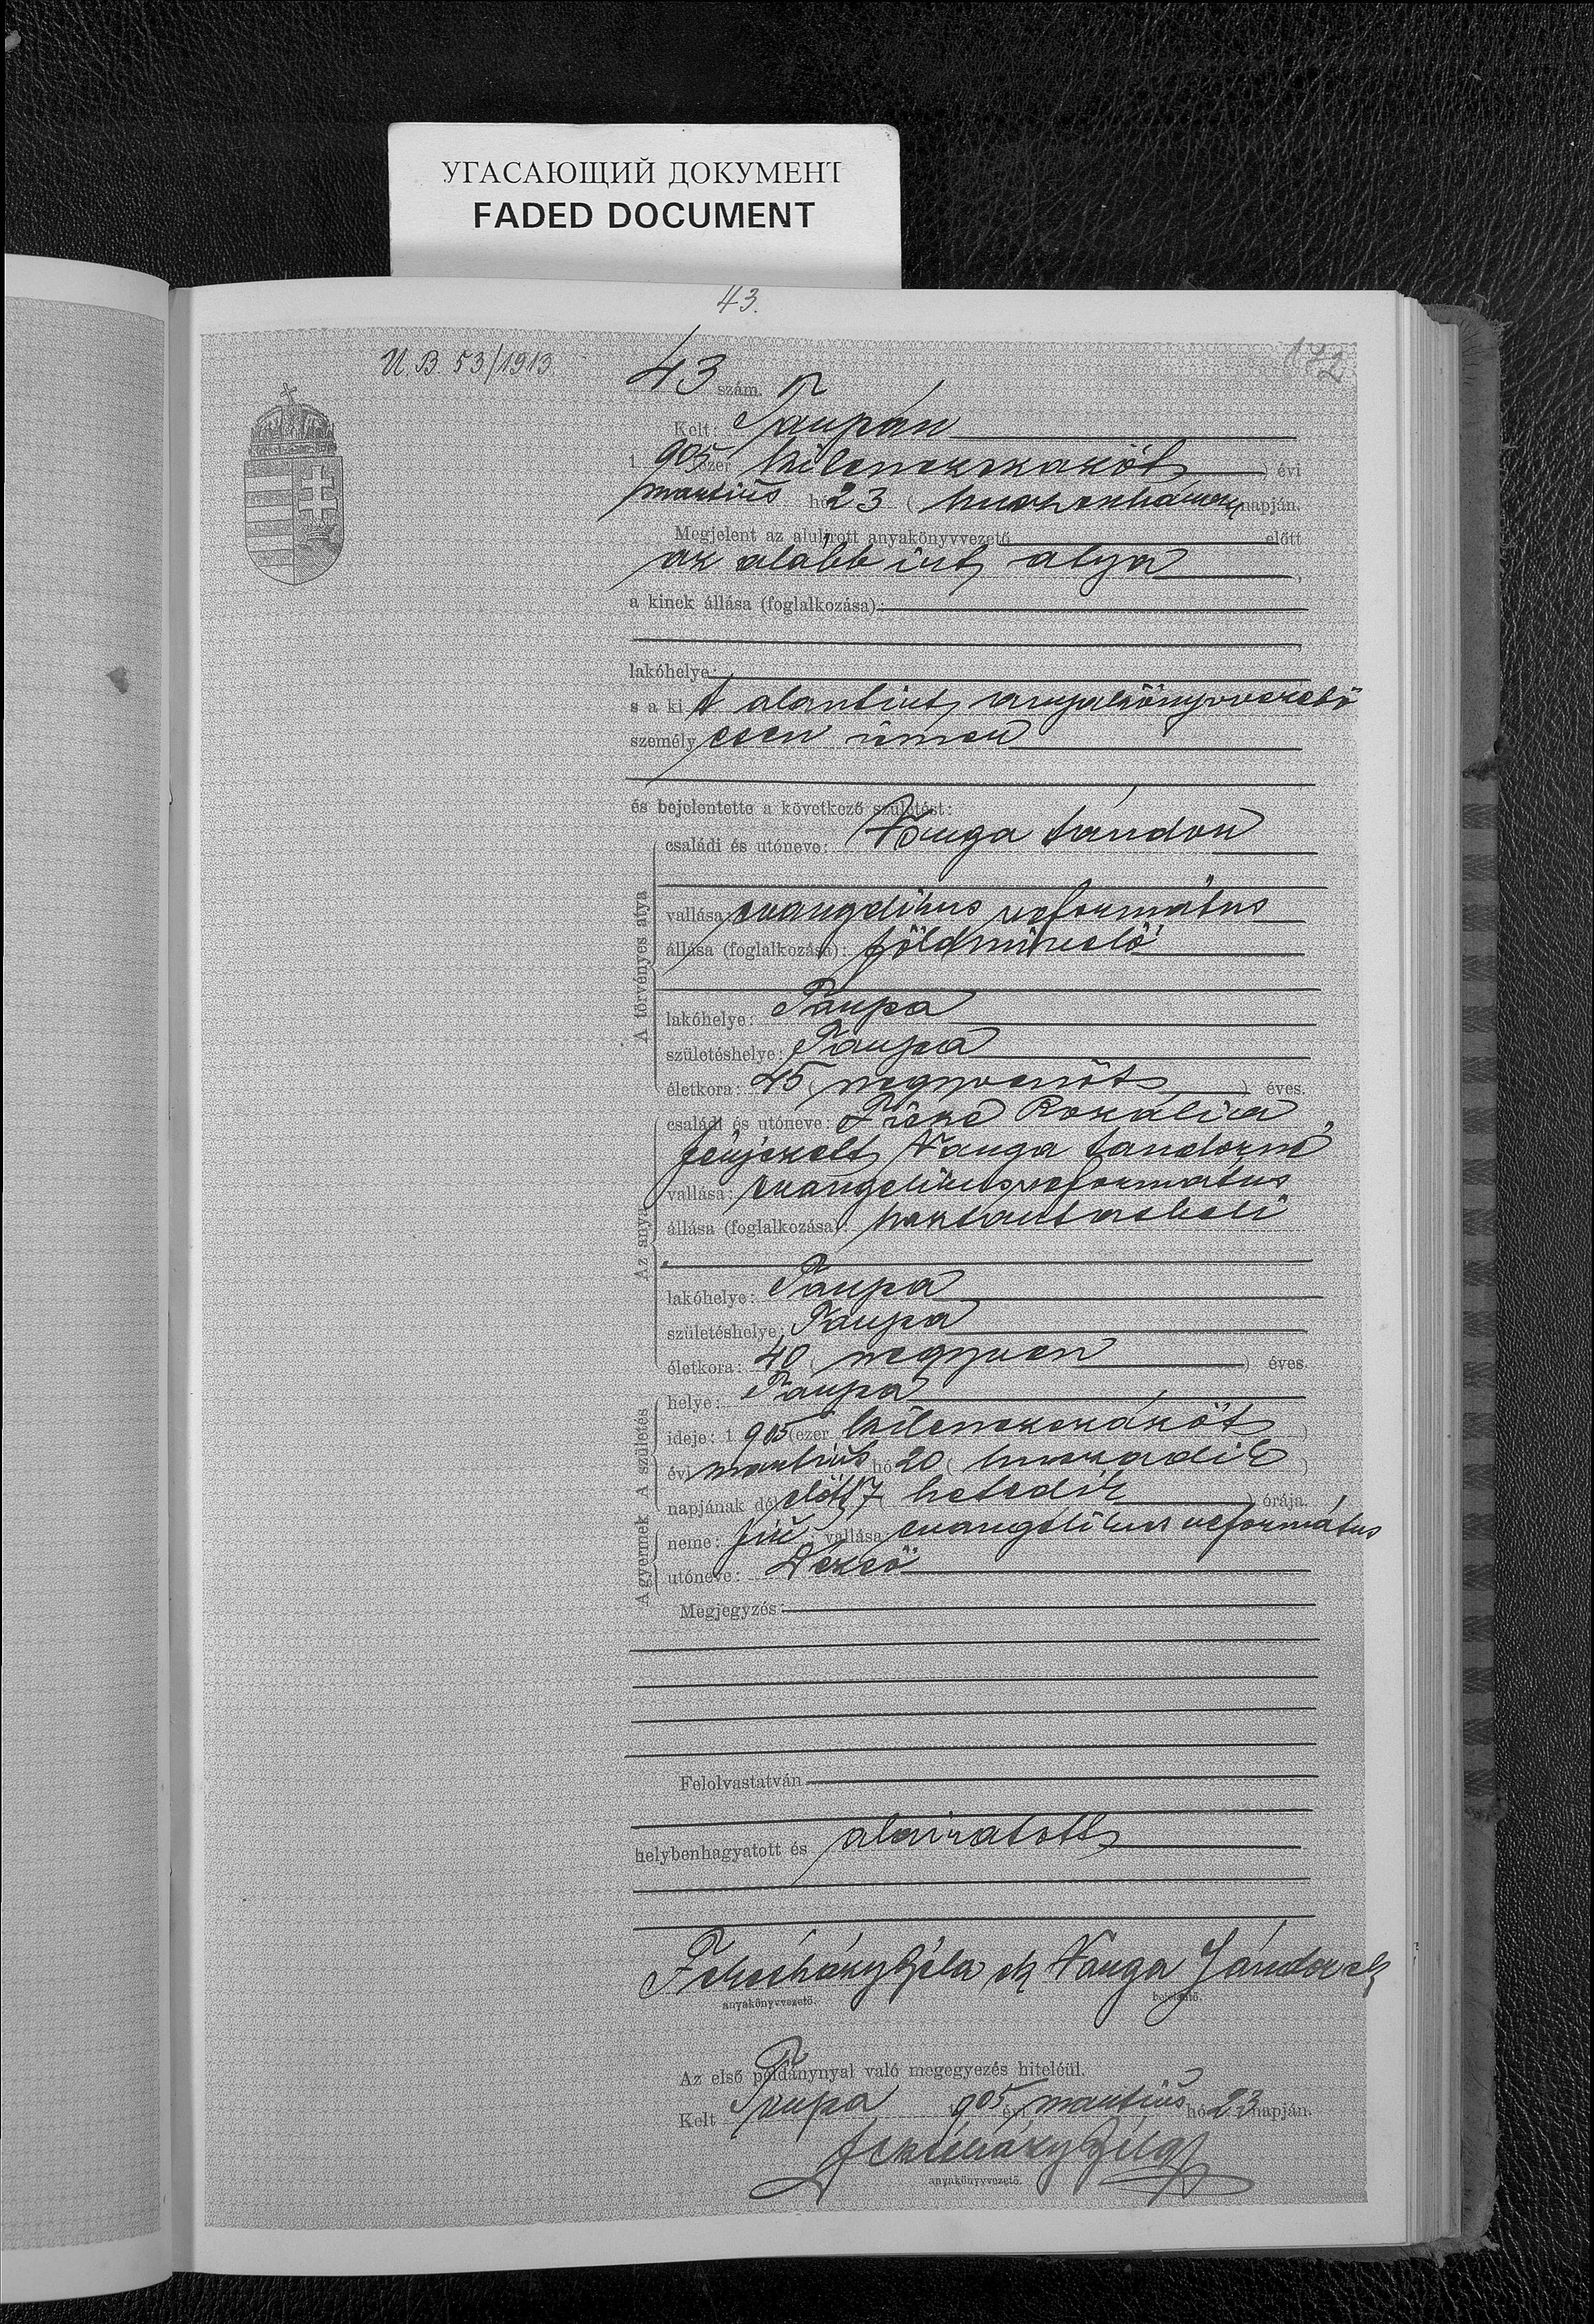 УГАСАЮЩИЙ ДОКУМЕНТ
FADED DOCUMENT
43.
U. B. 53/1913.
172
43 szám.
Kelt: Tarpán
1 905 ezer kilenczszázöt ) évi
martius hó 23 ( huszonhárom napján.
Megjelent az alulírott anyakönyvvezető előtt
az alább írt atya
a kinek állása (foglalkozása):
lakóhelye:
s a ki t alantirt anyakönyvvezető
személy esen ismer
és bejelentette a következő születést:
A törvényes atya
családi és utóneve: Varga Sándor
vallása: evangelikus református
állása (foglalkozása): földmivelő
lakóhelye: Tarpa
születéshelye: Tarpa
életkora: 45 ( negyvenöt ) éves.
Az anya
családi és utóneve: Rozália
férjezett Varga Sandorné
vallása: evangelikus református
állása (foglalkozása): háztartásbeli
lakóhelye: Tarpa
születéshelye: Tarpa
életkora: 40 ( negyven ) éves.
A gyermek A születés
helye: Tarpa
ideje: 1 905 (ezer kilenczszázöt )
évi martius hó 20 ( huszadik )
napjának dél előtt 7 hetedik ) órája.
neme: fiú; vallása: evangélikus református
utóneve: Dezső
Megjegyzés:
Felolvastatván
helybenhagyatott és aláiratott
Béla sk Varga Sándor sk
anyakönyvvezető. bejelentő.
Az első példánynyal való megegyezés hiteléül.
Kelt Tarpa 905 évi martius hó 23 napján.
Béla
anyakönyvvezető.